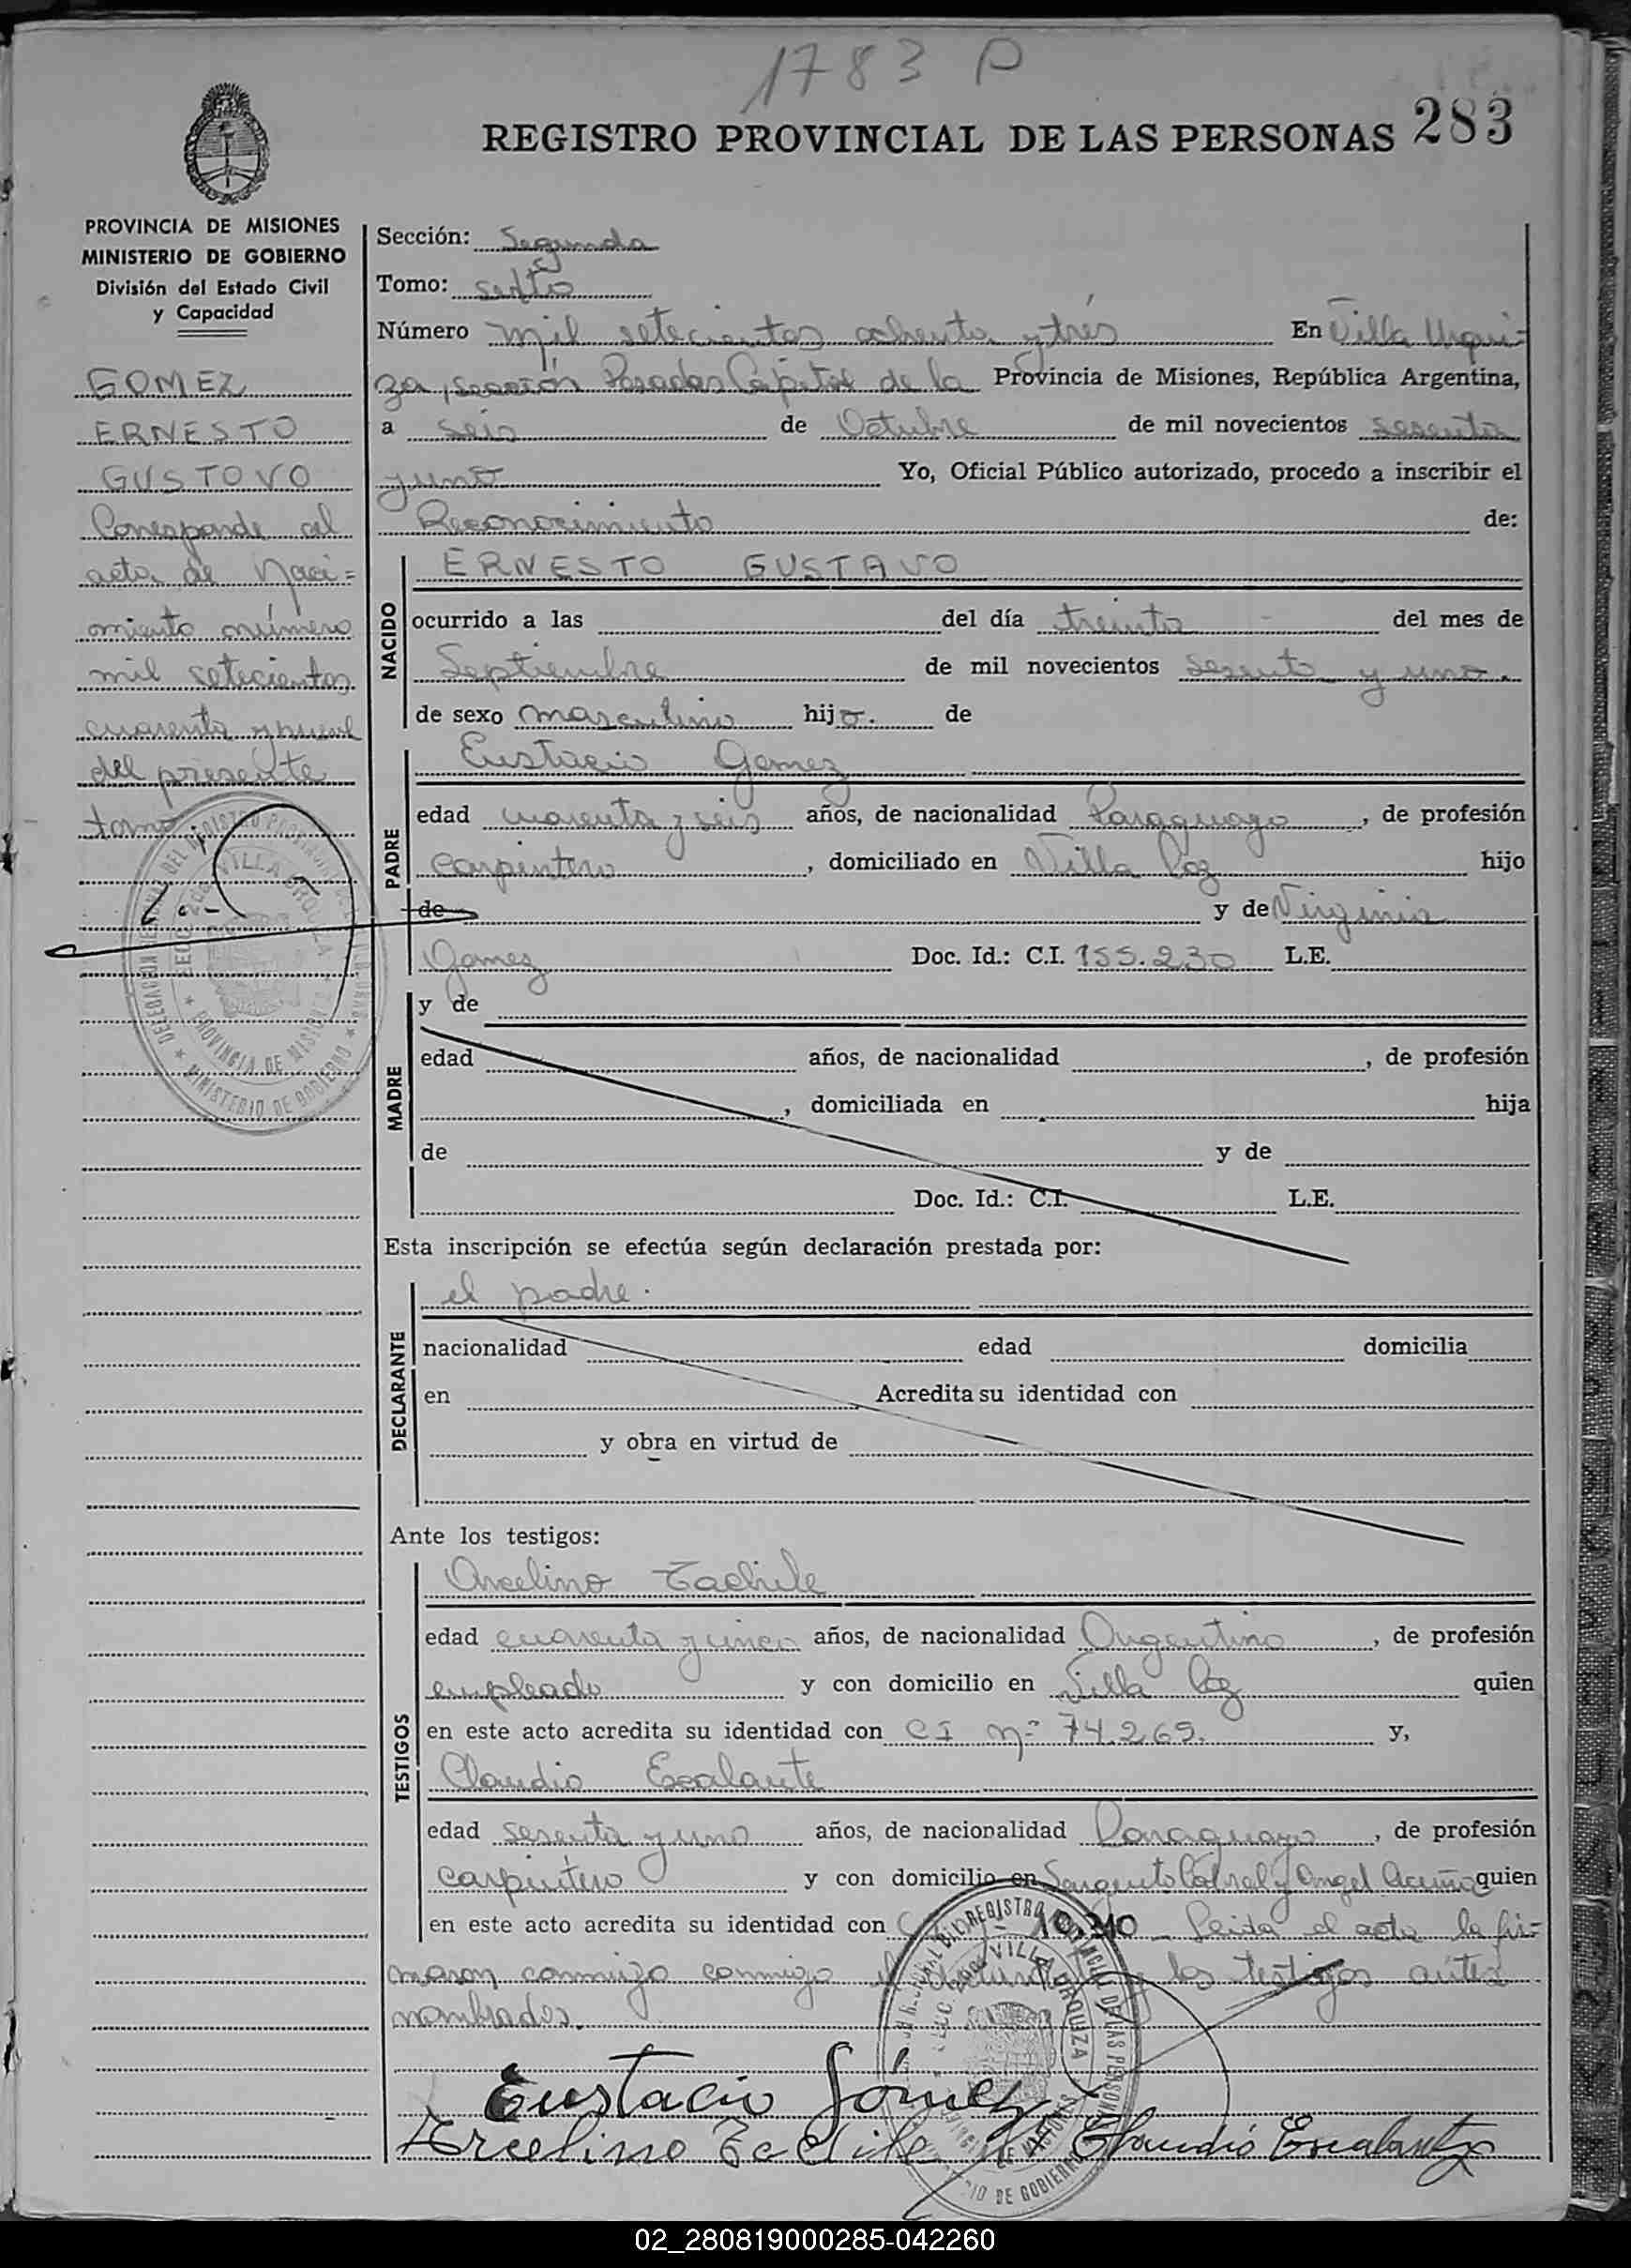 1783 P
REGISTRO PROVINCIAL DE LAS PERSONAS 283
PROVINCIA DE MISIONES
MINISTERIO DE GOBIERNO
División del Estado Civil
y Capacidad
GOMEZ
ERNESTO
GUSTOVO
Corresponde al
acta de Naci=
miento número
mil setecientos
cuarenta y nueve
del presente
tomo
Sección: Segunda
Tomo: sexto
Número mil setecientos ochenta y trés En Villa Urqui=
za, sección Posadas Capital de la Provincia de Misiones, República Argentina,
a seis de Octubre de mil novecientos sesenta
y uno Yo, Oficial Público autorizado, procedo a inscribir el
Reconocimiento de:
NACIDO
ERNESTO GUSTAVO
ocurrido a las del día treinta - del mes de
Septiembre de mil novecientos sesenta y uno.
de sexo masculino hijo. de
PADRE
Eustacio Gomez
edad cuarenta y seis años, de nacionalidad Paraguayo, de profesión
carpintero, domiciliado en Villa Poz hijo
de y de Virginia
Gomez Doc. Id.: C.I. 155.230 L.E.
MADRE
y de
edad años, de nacionalidad , de profesión
, domiciliada en hija
de y de
Doc. Id.: C.I. L.E.
Esta inscripción se efectúa según declaración prestada por:
DECLARANTE
el padre.
nacionalidad edad domicilia
en Acredita su identidad con
y obra en virtud de
Ante los testigos:
TESTIGOS
Arcelino Tachile
edad cuarenta y cinco años, de nacionalidad Argentino, de profesión
empleado y con domicilio en Villa Poz quien
en este acto acredita su identidad con CI Nº 74.265. y,
Claudio Escalante
edad sesenta y uno años, de nacionalidad Paraguayo, de profesión
carpintero y con domicilio en Sargento Cabral y Angel Acuña quien
en este acto acredita su identidad con Leida el acta la fir=
maron conmigo conmigo el y los testigos antes
nombrados.
Eustacio Gómez
Arcelino Claudio Escalante
02_280819000285-042260